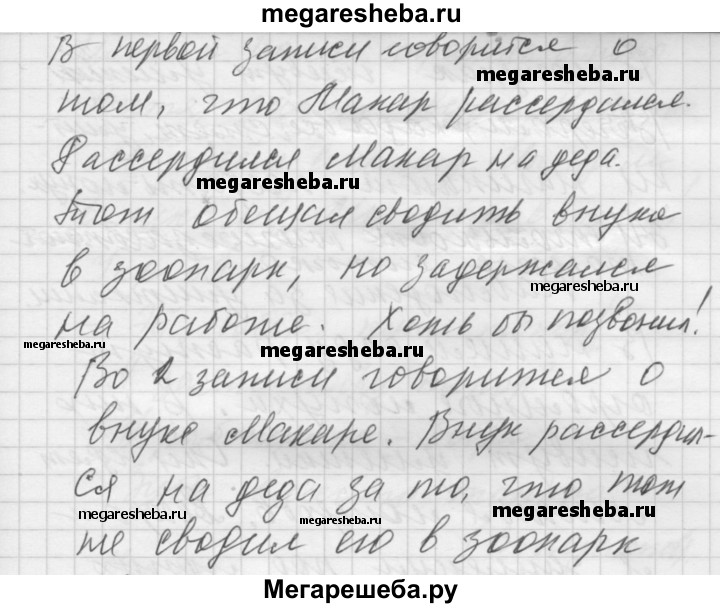 megaresheba.ru
В первой записи говорится о
megaresheba.ru
том, что Макар рассердился.
Рассердился Макар на деда.
megaresheba.ru
Тот обещал сводить внука
в зоопарк, но задержался
megaresheba.ru
на работе. Хоть бы позвонил!
megaresheba.ru
megaresheba.ru
Во 2 записи говорится о
внуке Макаре. Внук рассердил-
ся на деда за то, что тот
megaresheba.ru
megaresheba.ru
megaresheba.ru
не сводил его в зоопарк
Мегарешеба.ру